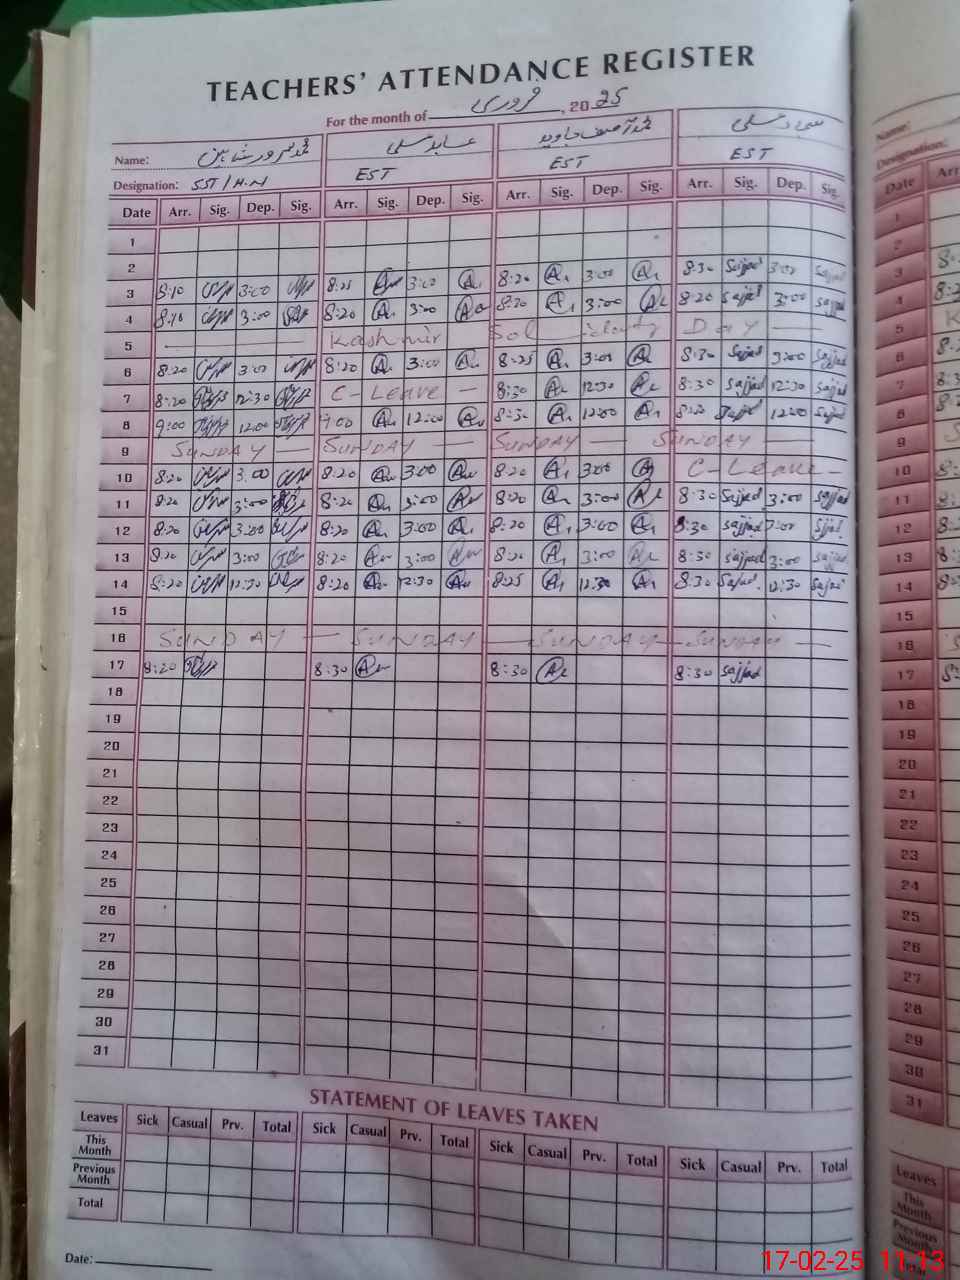 TEACHERS' ATTENDANCE REGISTER
For the month of فروری, 2025
Name: محمد سرور شاہین عابد علی محمد آصف جاوید سجاد علی
Designation: SST/H.M EST EST EST
Date Arr. Sig. Dep. Sig. Arr. Sig. Dep. Sig. Arr. Sig. Dep. Sig. Arr. Sig. Dep. Sig.
1
2
3 8:10 3:00 8:25 3:00 8:20 3:00 8:30 Sajjad 3:00 sajjad
4 8:10 3:00 8:20 3:00 8:20 3:00 8:20 sajjad 3:00 sajjad
5 Kashmir Day
6 8:20 3:00 8:20 3:00 8:25 3:00 8:30 sajjad 3:00 sajjad
7 8:20 12:30 C-Leave 8:30 12:30 8:30 sajjad 12:30 sajjad
8 9:00 12:00 12:00 8:30 12:00 8:30 sajjad 12:00 sajjad
9 SUNDAY SUNDAY SUNDAY SUNDAY
10 8:20 3:00 8:20 3:00 8:20 3:00 C-Leave
11 8:20 3:00 8:20 3:00 8:20 3:00 8:30 Sajjad 3:00 sajjad
12 8:20 3:00 8:20 3:00 8:20 3:00 8:30 sajjad 3:00 Sjjad
13 8:20 3:00 8:20 3:00 8:20 3:00 8:30 sajjad 3:00 sajjad
14 8:20 12:30 8:20 12:30 8:25 12:30 8:30 Sajad. 12:30 sajad
15
16 SUNDAY SUNDAY SUNDAY SUNDAY
17 8:20 8:30 8:30 8:30 sajjad
18
19
20
21
22
23
24
25
26
27
28
29
30
31
STATEMENT OF LEAVES TAKEN
Leaves Sick Casual Prv. Total Sick Casual Prv. Total Sick Casual Prv. Total Sick Casual Prv. Total
This Month
Previous Month
Total
Date:
Name:
Designation:
Date Arr
1
2
3
4
5
6
7
8
9
10
11
12
13
14
15
16
17
18
19
20
21
22
23
24
25
26
27
28
29
30
31
Leaves
This Month
Previous Month
Total
17-02-25 11:13